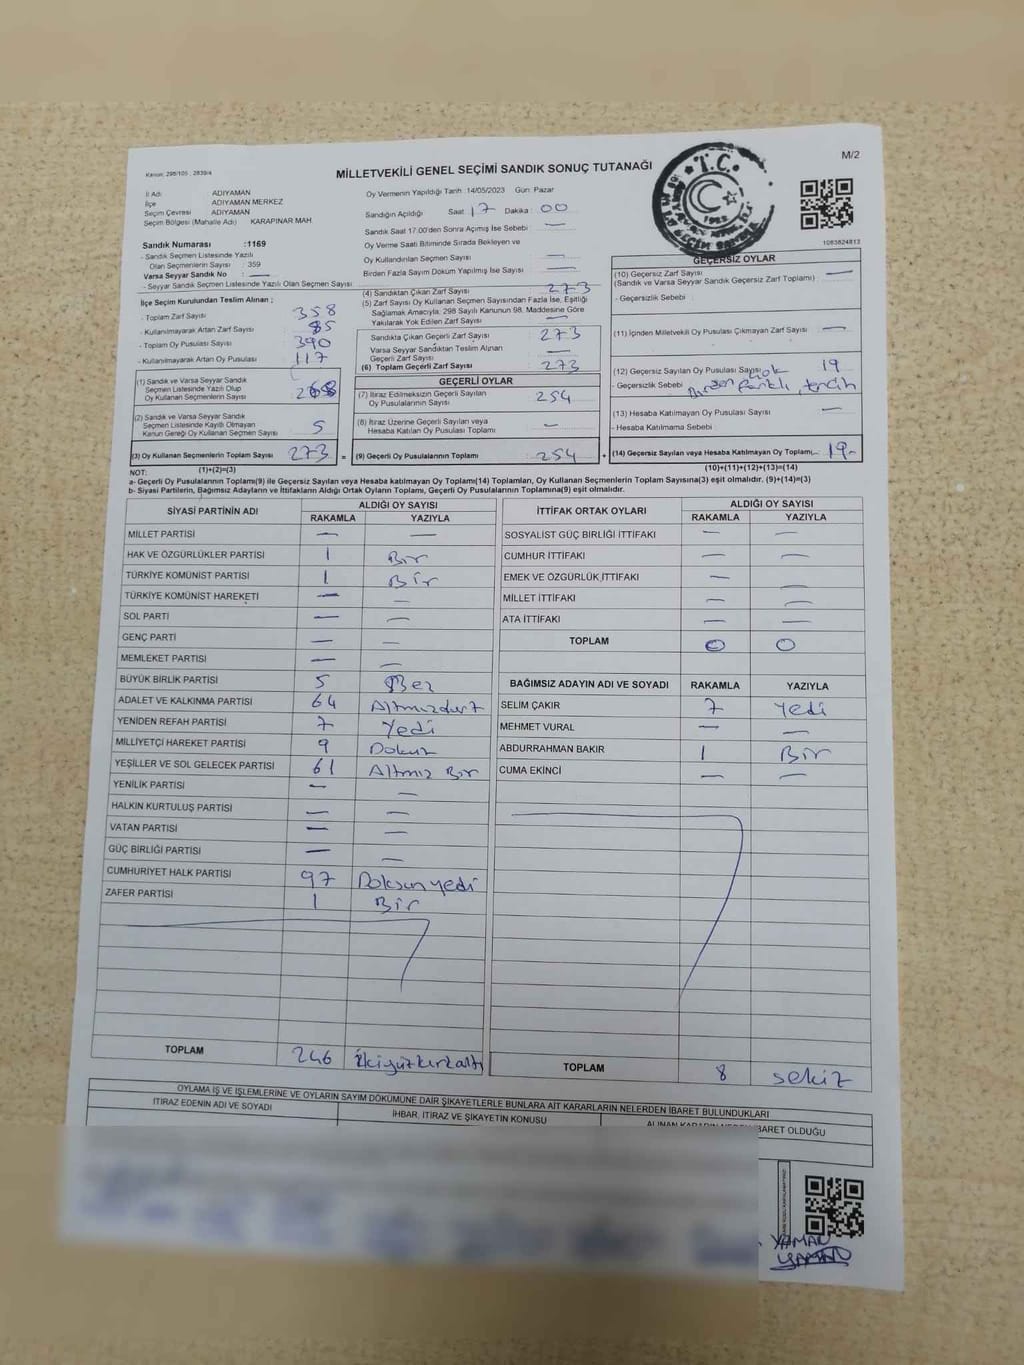 Kanun: 298/105 , 2839/4
MİLLETVEKİLİ GENEL SEÇİMİ SANDIK SONUÇ TUTANAĞI
M/2
T.C.
1083824813
İl Adı ADIYAMAN
İlçe ADIYAMAN MERKEZ
Seçim Çevresi ADIYAMAN
Seçim Bölgesi (Mahalle Adı) KARAPINAR MAH
Sandık Numarası :1169
- Sandık Seçmen Listesinde Yazılı
Olan Seçmenlerin Sayısı : 359
Varsa Seyyar Sandık No : —
- Seyyar Sandık Seçmen Listesinde Yazılı Olan Seçmen Sayısı
Oy Vermenin Yapıldığı Tarih :14/05/2023 Gün: Pazar
Sandığın Açıldığı Saat 17 Dakika : 00
Sandık Saat 17:00'den Sonra Açımış İse Sebebi —
Oy Verme Saati Bitiminde Sırada Bekleyen ve
Oy Kullandırılan Seçmen Sayısı —
Birden Fazla Sayım Döküm Yapılmış İse Sayısı —
İlçe Seçim Kurulundan Teslim Alınan ;
- Toplam Zarf Sayısı 358
- Kullanılmayarak Artan Zarf Sayısı 85
- Toplam Oy Pusulası Sayısı 390
- Kullanılmayarak Artan Oy Pusulası 117
(1) Sandık ve Varsa Seyyar Sandık
Seçmen Listesinde Yazılı Olup
Oy Kullanan Seçmenlerin Sayısı 268
(2) Sandık ve Varsa Seyyar Sandık
Seçmen Listesinde Kayıtlı Olmayan
Kanun Gereği Oy Kullanan Seçmen Sayısı 5
(3) Oy Kullanan Seçmenlerin Toplam Sayısı 273 =
(1)+(2)=(3)
(4) Sandıktan Çıkan Zarf Sayısı 273
(5) Zarf Sayısı Oy Kullanan Seçmen Sayısından Fazla İse, Eşitliği
Sağlamak Amacıyla, 298 Sayılı Kanunun 98. Maddesine Göre
Yakılarak Yok Edilen Zarf Sayısı —
Sandıkta Çıkan Geçerli Zarf Sayısı 273
Varsa Seyyar Sandıktan Teslim Alınan
Geçerli Zarf Sayısı —
(6) Toplam Geçerli Zarf Sayısı 273
GEÇERLİ OYLAR
(7) İtiraz Edilmeksizin Geçerli Sayılan
Oy Pusulalarının Sayısı 254
(8) İtiraz Üzerine Geçerli Sayılan veya
Hesaba Katılan Oy Pusulası Toplamı —
(9) Geçerli Oy Pusulalarının Toplamı 254 +
GEÇERSİZ OYLAR
(10) Geçersiz Zarf Sayısı —
(Sandık ve Varsa Seyyar Sandık Geçersiz Zarf Toplamı)
- Geçersizlik Sebebi :
(11) İçinden Milletvekili Oy Pusulası Çıkmayan Zarf Sayısı —
(12) Geçersiz Sayılan Oy Pusulası Sayısı 19
- Geçersizlik Sebebi : Birden çok farklı tercih
(13) Hesaba Katılmayan Oy Pusulası Sayısı —
- Hesaba Katılmama Sebebi :
(14) Geçersiz Sayılan veya Hesaba Katılmayan Oy Toplamı 19-
(10)+(11)+(12)+(13)=(14)
NOT:
a- Geçerli Oy Pusulalarının Toplamı(9) ile Geçersiz Sayılan veya Hesaba katılmayan Oy Toplamı(14) Toplamları, Oy Kullanan Seçmenlerin Toplam Sayısına(3) eşit olmalıdır. (9)+(14)=(3)
b- Siyasi Partilerin, Bağımsız Adayların ve İttifakların Aldığı Ortak Oyların Toplamı, Geçerli Oy Pusulalarının Toplamına(9) eşit olmalıdır.
SİYASİ PARTİNİN ADI ALDIĞI OY SAYISI
RAKAMLA YAZIYLA
MİLLET PARTİSİ — —
HAK VE ÖZGÜRLÜKLER PARTİSİ 1 Bir
TÜRKİYE KOMÜNİST PARTİSİ 1 Bir
TÜRKİYE KOMÜNİST HAREKETİ — —
SOL PARTİ — —
GENÇ PARTİ — —
MEMLEKET PARTİSİ — —
BÜYÜK BİRLİK PARTİSİ 5 Beş
ADALET VE KALKINMA PARTİSİ 64 Altmızdört
YENİDEN REFAH PARTİSİ 7 Yedi
MİLLİYETÇİ HAREKET PARTİSİ 9 Dokuz
YEŞİLLER VE SOL GELECEK PARTİSİ 61 Altmız Bir
YENİLİK PARTİSİ — —
HALKIN KURTULUŞ PARTİSİ — —
VATAN PARTİSİ — —
GÜÇ BİRLİĞİ PARTİSİ — —
CUMHURİYET HALK PARTİSİ 97 Doksanyedi
ZAFER PARTİSİ 1 Bir
TOPLAM 246 İkiyüzkırkaltı
İTTİFAK ORTAK OYLARI ALDIĞI OY SAYISI
RAKAMLA YAZIYLA
SOSYALİST GÜÇ BİRLİĞİ İTTİFAKI — —
CUMHUR İTTİFAKI — —
EMEK VE ÖZGÜRLÜK İTTİFAKI — —
MİLLET İTTİFAKI — —
ATA İTTİFAKI — —
TOPLAM 0 0
BAĞIMSIZ ADAYIN ADI VE SOYADI RAKAMLA YAZIYLA
SELİM ÇAKIR 7 Yedi
MEHMET VURAL — —
ABDURRAHMAN BAKIR 1 Bir
CUMA EKİNCİ — —
TOPLAM 8 sekiz
OYLAMA İŞ VE İŞLEMLERİNE VE OYLARIN SAYIM DÖKÜMÜNE DAİR ŞİKAYETLERLE BUNLARA AİT KARARLARIN NELERDEN İBARET BULUNDUKLARI
İTİRAZ EDENİN ADI VE SOYADI
İHBAR, İTİRAZ VE ŞİKAYETİN KONUSU
ALINAN KARARIN NEDEN İBARET OLDUĞU
YAMAN
YAMAN